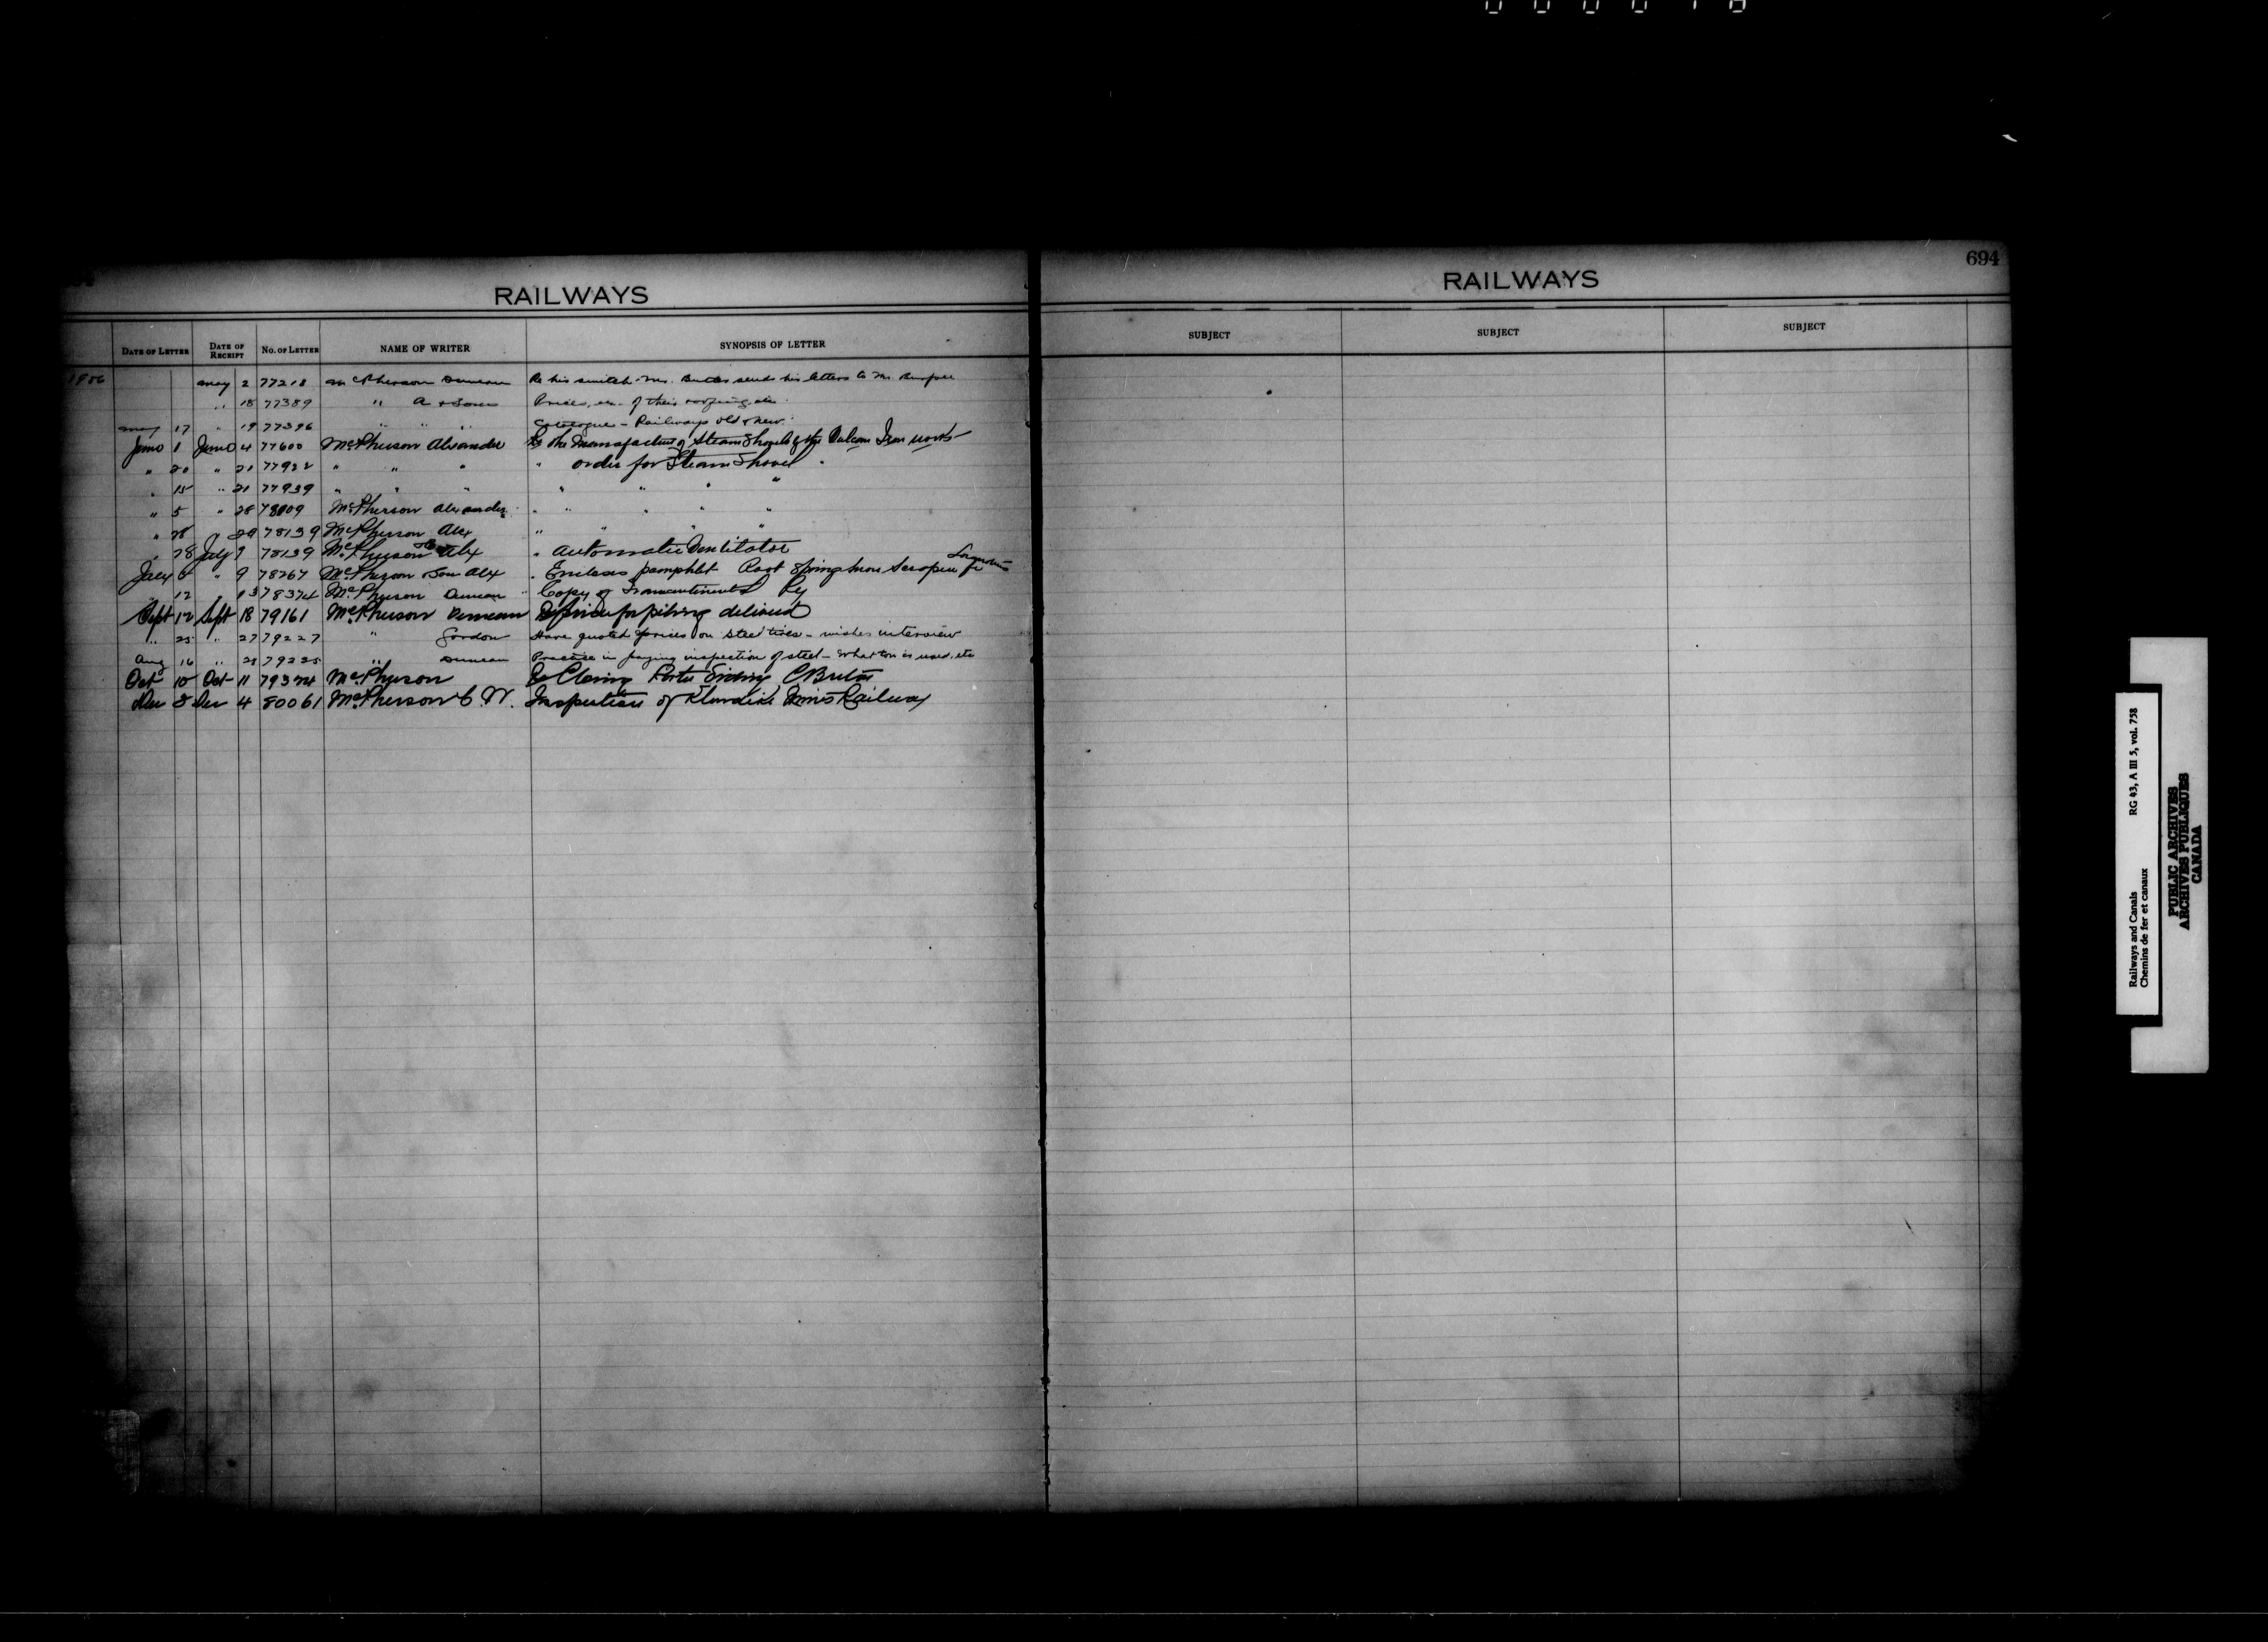 694
RAILWAYS
RAILWAYS
DATE OF LETTER DATE OF RECEIPT No. OF LETTER NAME OF WRITER SYNOPSIS OF LETTER
SUBJECT SUBJECT SUBJECT
1906 May 2 77218 McPherson Duncan Re his switch - Mr. Butler sends his letters to Mr. Burpee
" 18 77389 " A & Sons Prices, etc. of their roofing, etc.
May 17 " 19 77396 " " " Catalogue - Railways old & new
June 1 June 4 77600 McPherson Alexander Re the Manufacture of Steam Shovels by the Vulcan Iron works
" 20 " 21 77922 " " " " order for Steam Shovel
" 15 " 21 77939 " " " " " " "
" 5 " 28 78009 McPherson Alexander " " " " "
" 28 " 29 78139 McPherson Alex " " " "
" 28 July 9 78139 McPherson Alex " Automatic Ventilator
July 5 " 9 78267 McPherson & Son Alex " Encloses pamphlet Root Spring Snow Scraper for Locomotives
" 12 " 13 78374 McPherson Duncan " Copy of Transcontinental Ry
Sept 12 Sept 18 79161 McPherson Duncan Re price for piling delivered
" 25 " 27 79227 " Gordon Have quoted prices on steel ties - wishes interview
Aug 16 " 28 79225 " Duncan Practice in paying inspection of steel - What ton is used, etc
Oct 10 Oct 11 79374 McPherson Re Closing Porter Siding C Breton
Dec 3 Dec 4 80061 McPherson C. W. Inspection of Klondike Mines Railway
Railways and Canals RG 43, A III 5, vol. 758
Chemins de fer et canaux
PUBLIC ARCHIVES
ARCHIVES PUBLIQUES
CANADA